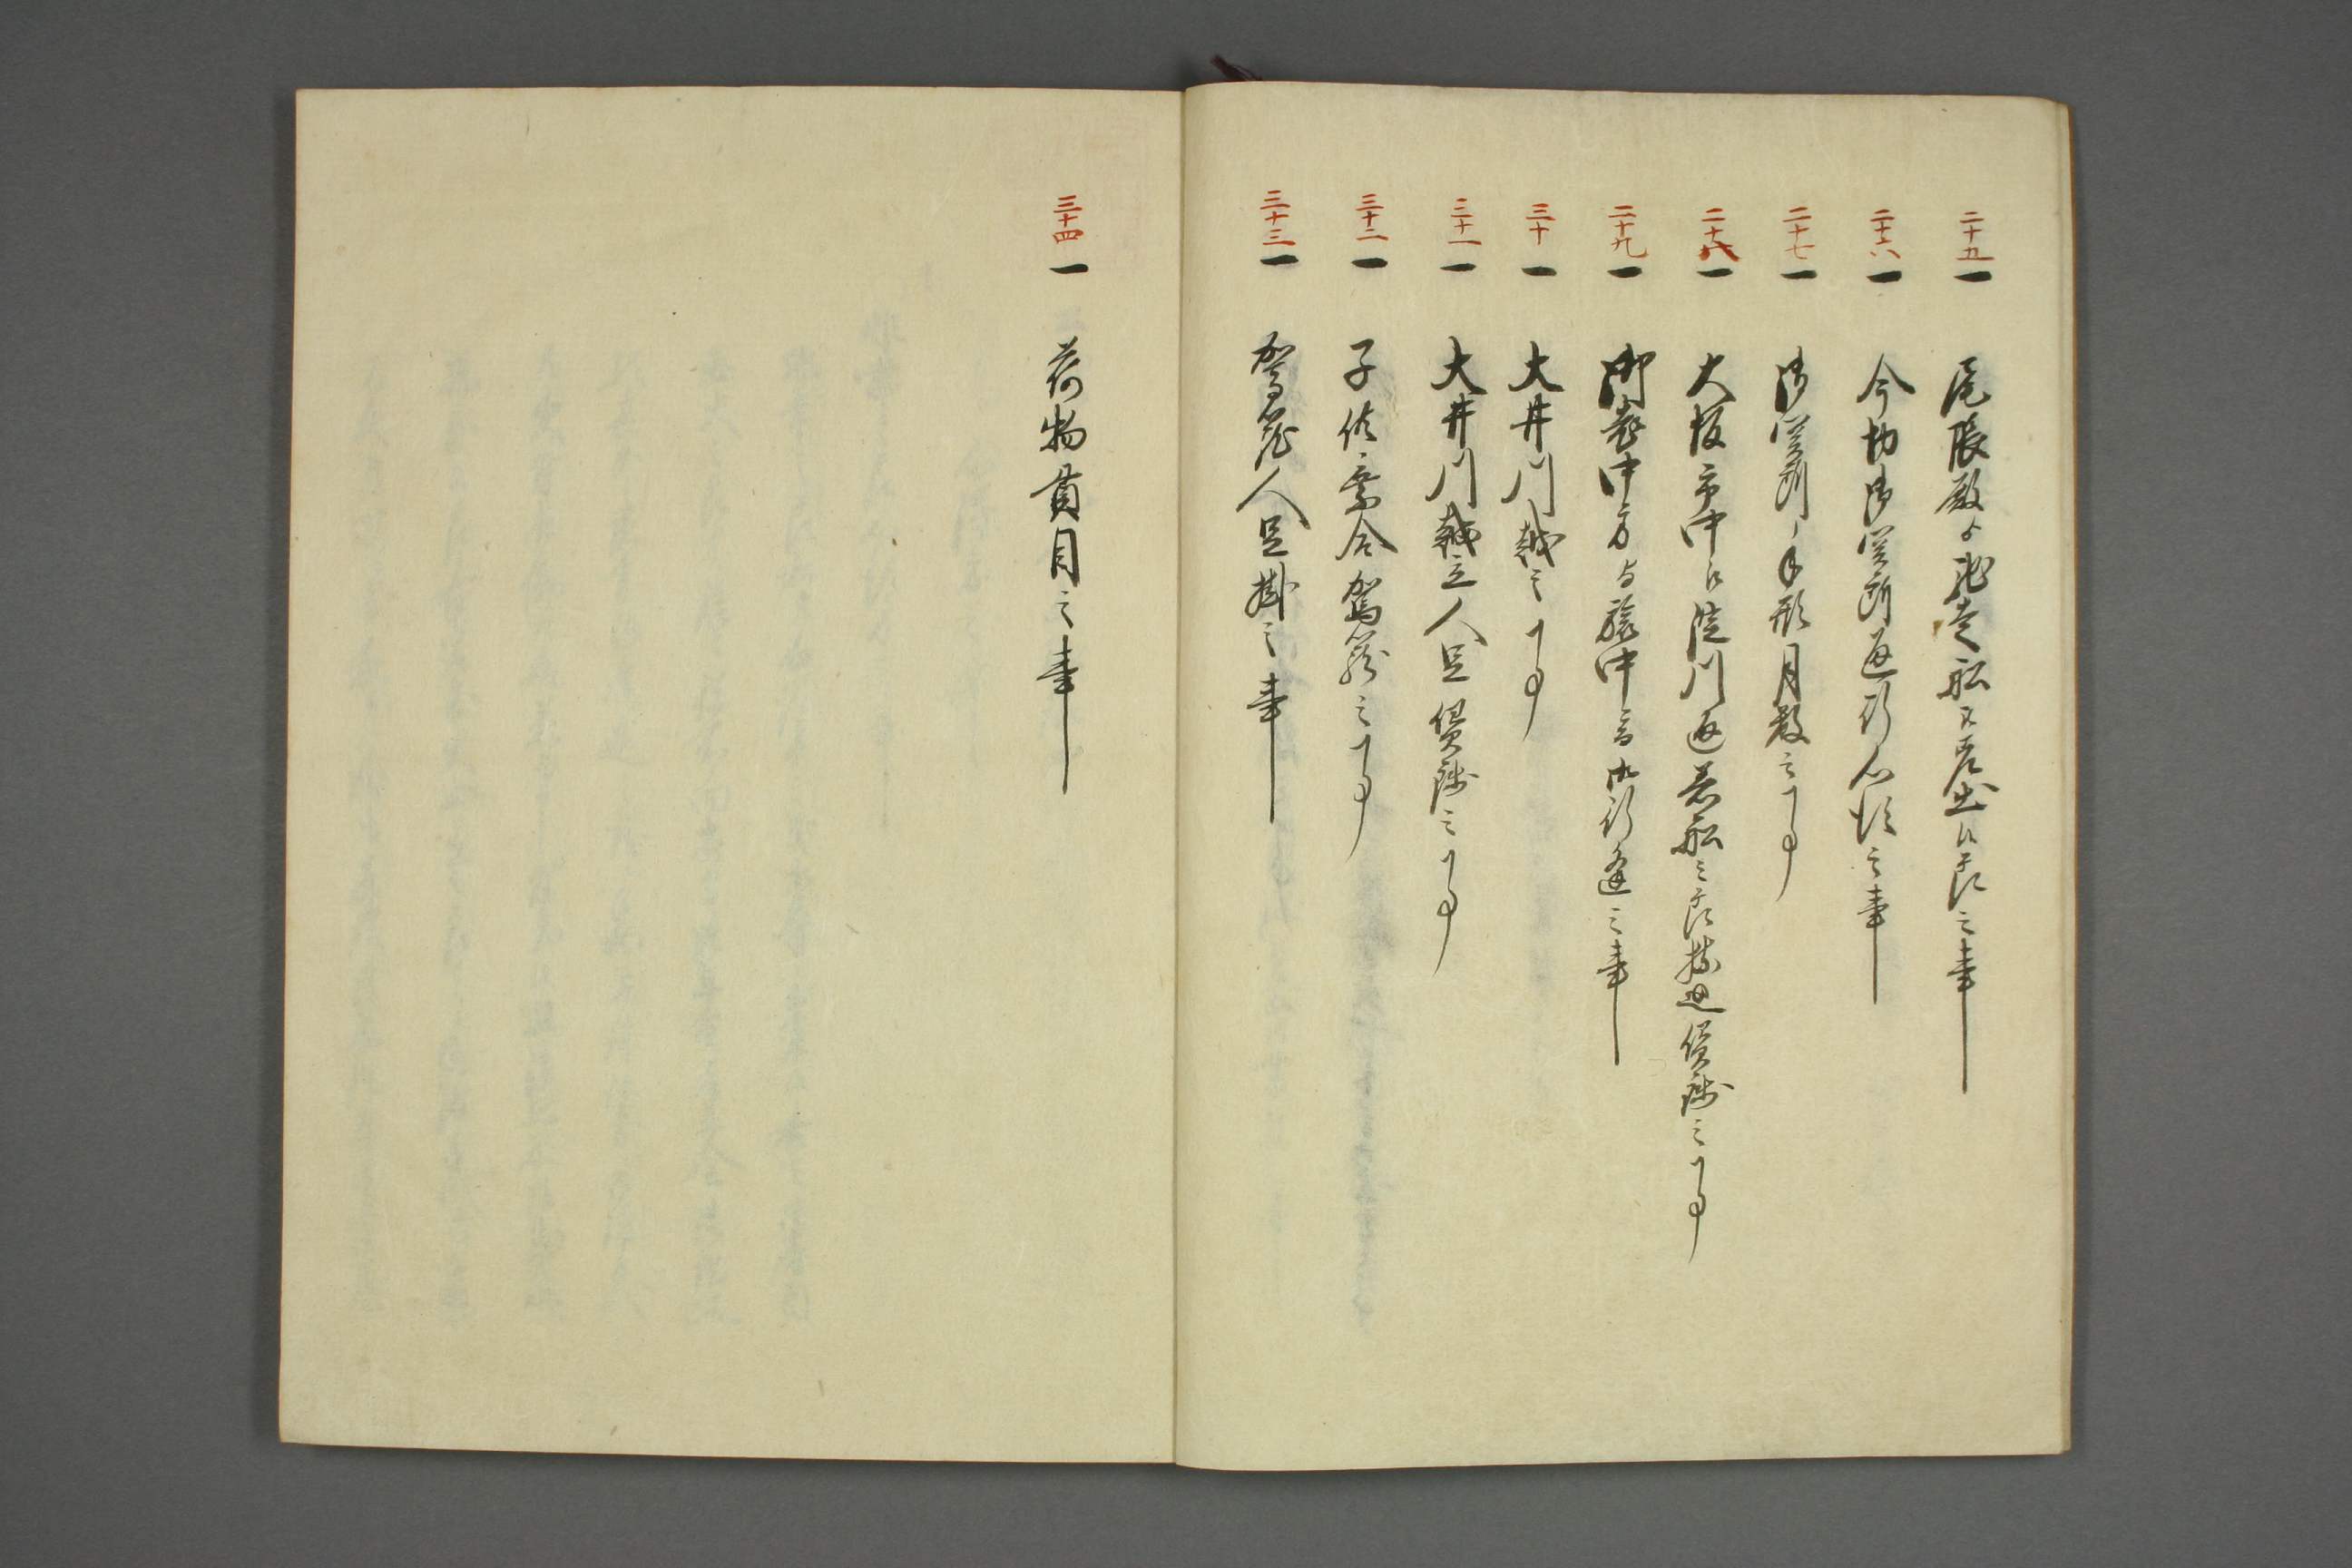 二十五一 尾張殿ゟ馳走船被差出候節之事
二十六一 今切御関所通行心得之事
二十七一 御関所手形月数之事
二十八一 大坂市中江淀川通着船之節掾廻賃銭之事
二十九一 御老中方与旅中ニ而御行逢之事
三十一 大井川越之事
三十一一 大井川越立人足賃銭之事
三十二一 子供乗合駕籠之事
三十三一 駕籠人足掛之事
三十四一 荷物貫目之事